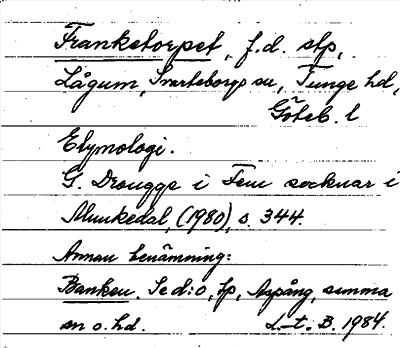 Franketorpet, f.d. stp,
Lågum, Svarteborgs sn, Tunge hd,
Göteb. l
Etymologi.
G. Drougge i Fem socknar i
Munkedal, (1980), s. 344.
Annan benämning:
Banken. Se d:o, tp, Aspång, samma
sn o. hd. L.t. B. 1984.